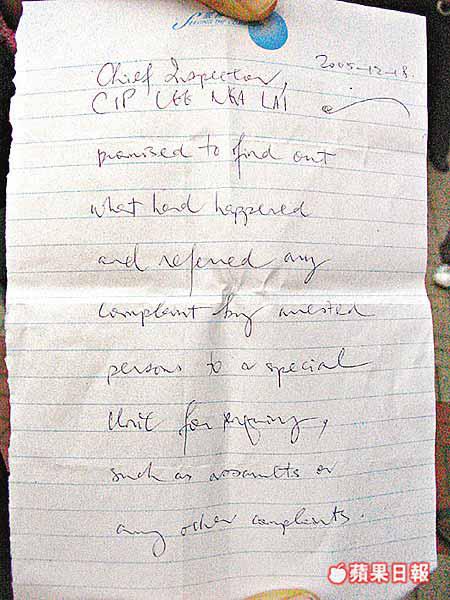 SERVING THE COMM
2005-12-18
Chief Inspector,
CIP LEE NGA LAI
promised to find out
what had happened
and referred any
complaint by arrested
persons to a special
Unit for enquiry,
such as assaults or
any other complaints.
蘋果日報